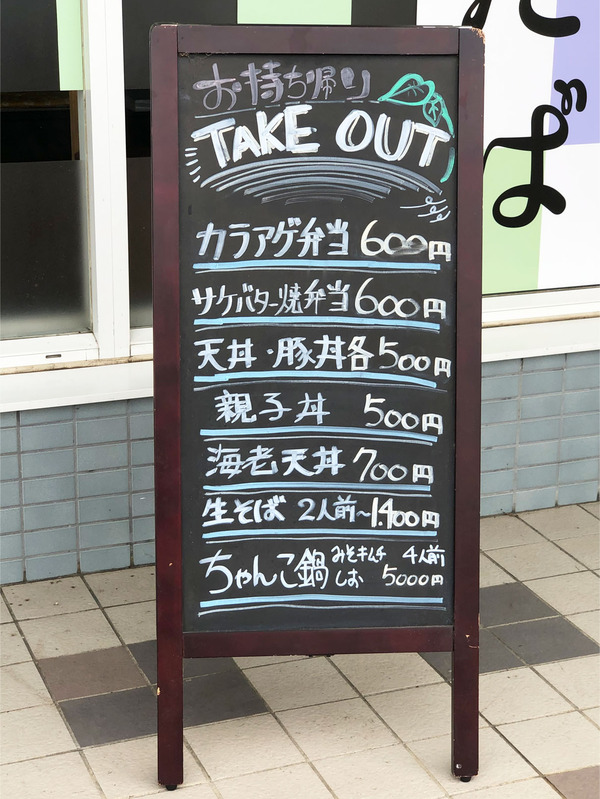 お持ち帰り
TAKE OUT
カラアゲ弁当 600円
サケバター焼弁当 600円
天丼・豚丼各500円
親子丼 500円
海老天丼 700円
生そば 2人前~1.400円
ちゃんこ鍋 みそキムチ 4人前
しお 5000円
そば